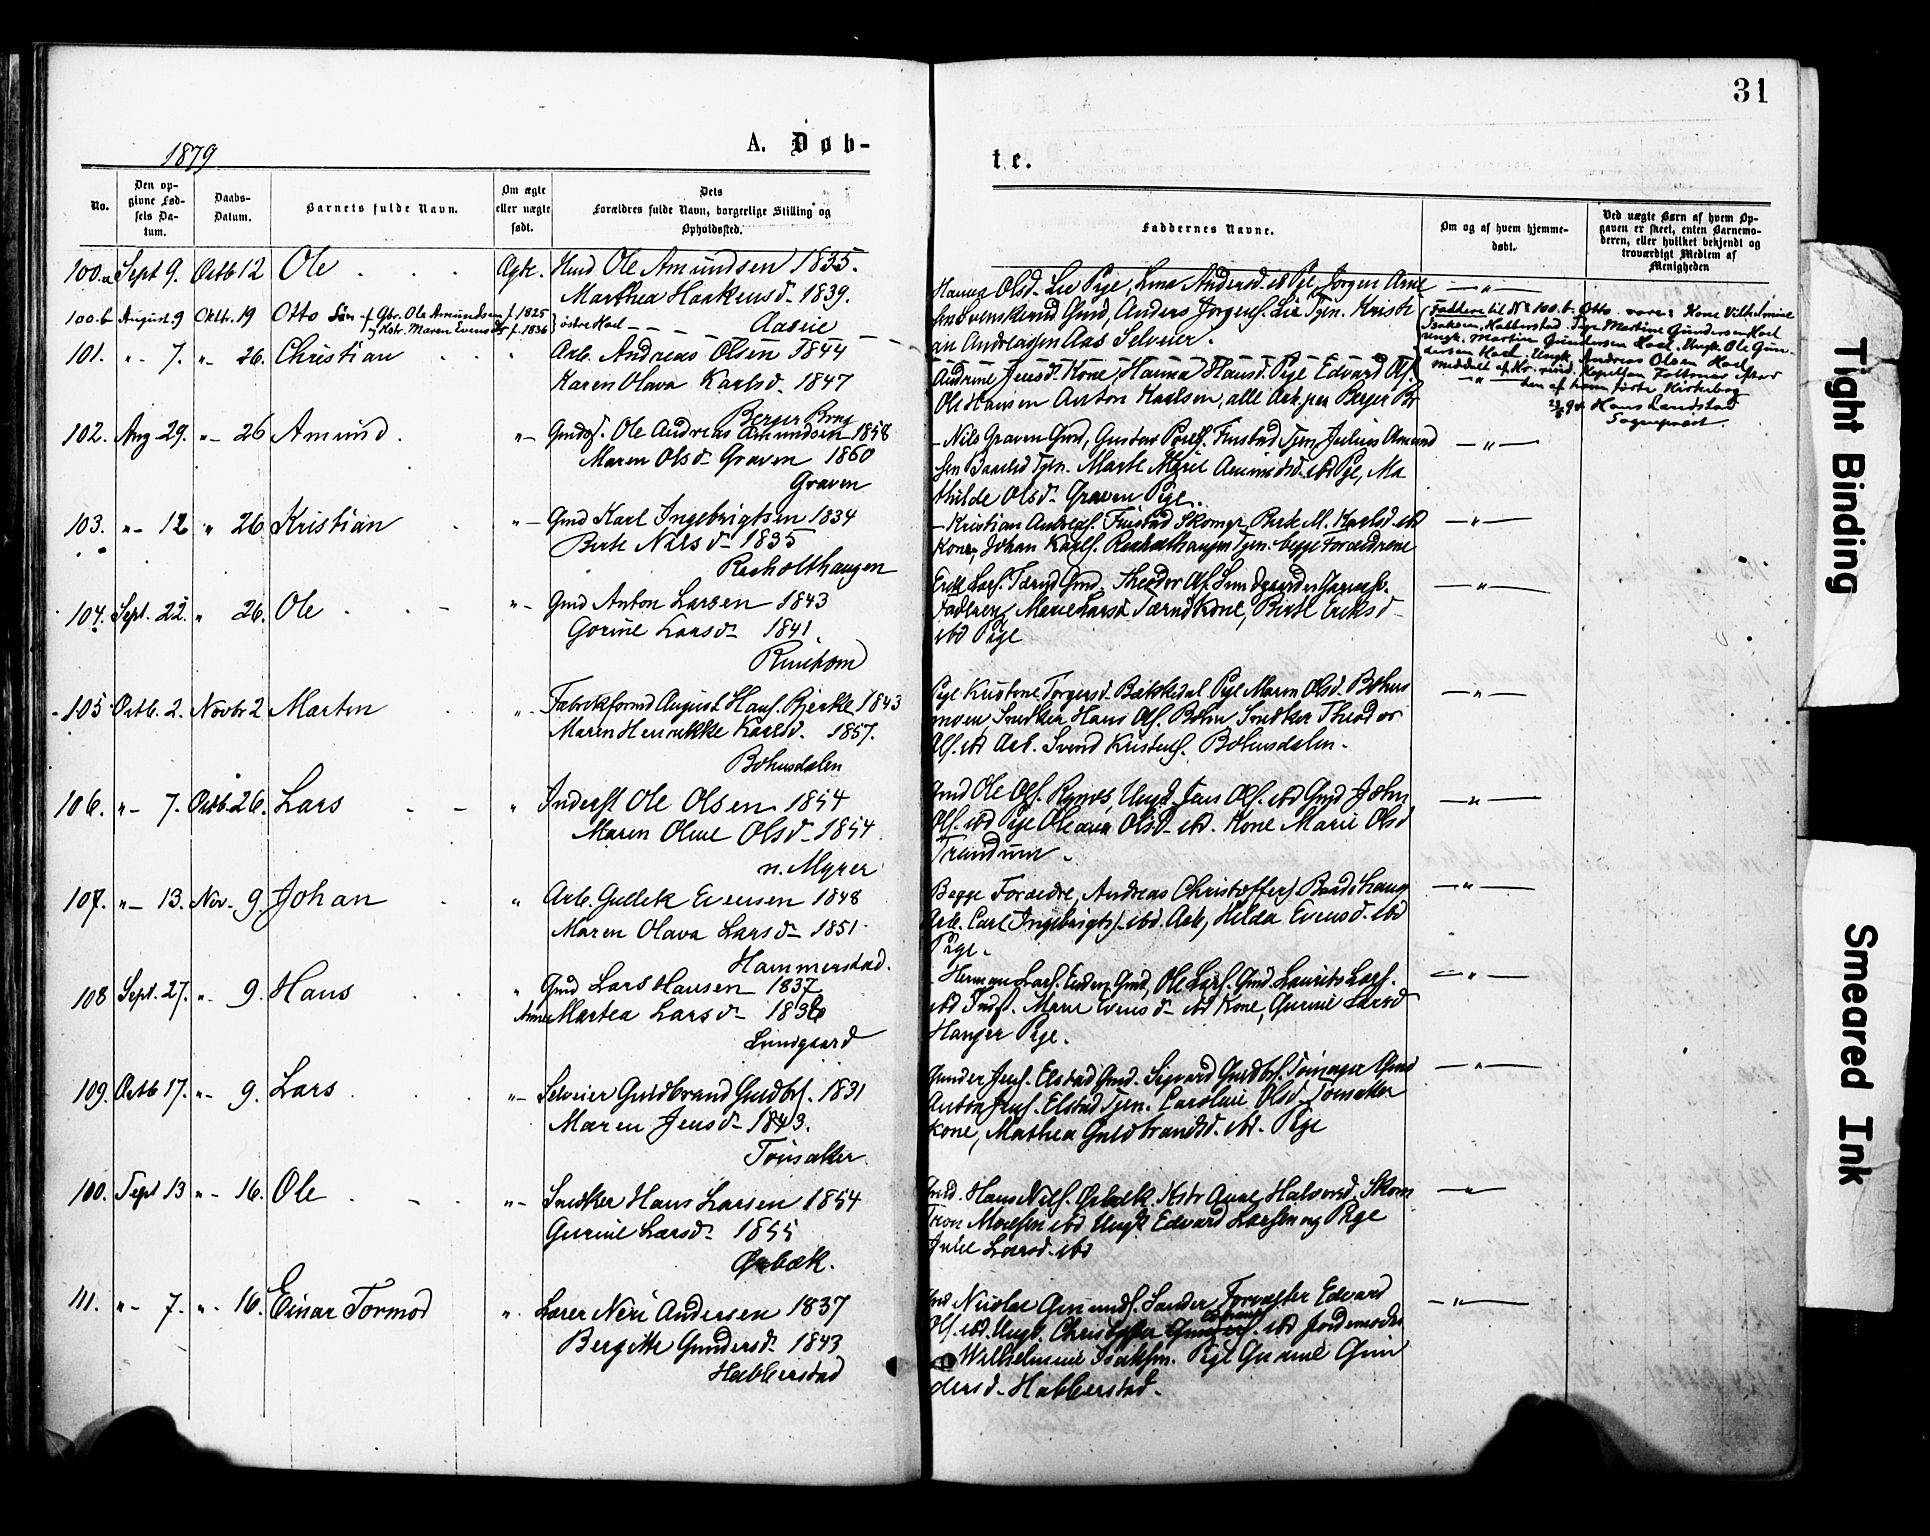 31
1879
A. Døb-
te.
No.
Den op-
givne Fød-
sels Da-
tum.
Daabs-
Datum.
Barnets fulde Navn.
Om ægte
eller uægte
født.
Dets
Forældres fulde Navn, borgerlige Stilling og
Opholdssted.
Faddernes Navne.
Om og af hvem hjemme-
døbt.
Ved uægte Børn af hvem Op-
gaven er skeet, enten Barnemo-
deren, eller hvilket bekjendt og
troværdigt Medlem af
Menigheden
100.a Sept 9. Octb 12 Ole Ægte. Ole Amundsen 1835.
Marthea Haakensd. 1839.
Aaseie
Hanna Olsd. Lie Pige, Lina Andersd. ibd Pge, Jørgen
Gmd, Anders Jørgens. Lie Tjen.
Aas Selveier.
100.b August 9 Oktb. 19 Otto Søn af Gbr. Ole Amundsen f. 1825
og Kstr. Maren Evensd. f. 1836 østre Hoel
Faddere til No 100.b. Otto vare: Kone Vilhelmine
Isaksen, Habberstad. Pige Martine Gundersen Hoel
Ungk. Martin Gundersen Hoel. Ungk. Ole Gun-
dersen Hoel. Ungk. Andreas Olsen Hoel
meddelt af
den af ham førte Kirkebog
Hans Landstad
Sogneprest.
101. "- 7. "- 26. Christian " Arb. Andreas Olsen 1844
Karen Olava Karlsd. 1847
Berger Brug
Andrine Jensd. Kone, Hanna Hansd. Pige Edvard Ols.
Ole Hansen Anton Karlsen, alle Arb. paa Berger Br
102. Aug 29. "- 26 Amund. "- Ole Andreas Amundsen 1858
Maren Olsd. Graven 1860
Graven
Nils Graven Gmd, Gustav Furstad Tjen, Julius Amund
sen Tjen. Marte Marie Amundsd. ibd Pge, Ma
thilde Olsd. Graven Pige.
103. "- 12 " 26 Kristian "- Gmd Karl Ingebrigtsen 1834
Berte Nilsd. 1835
Reeholthaugen
Kristian Andreas. Furstad Skomgr, Berte M. Karlsd. ibd
Kone, Johan Karls. Reeholthaugen Tjen. begge Forældrene
104. Sept. 22. " 26. Ole "- Gmd Anton Larsen 1843
Gorine Larsd. 1841.
Erik Lars. Tærud Gmd. Theodor Ols.
Marie Larsd. Tærud Kone, Berte Eriksd
ibd Pige
105 Octb. 2. Novbr 2 Martin "- August Hans. Bjerke 1843
Maren Henrikke Karlsd. 1857.
Bohusdalen
Pige Kristine Torgersd. Bækkedal. Pige Maren Olsd. Bohus
moen Snedker Hans Ols. Bohn Snedker Theodor
Ols. ibd Arb. Svend Kristens. Bohusdalen.
106. "- 7. Octb. 26. Lars " Inderst Ole Olsen 1854
Maren Oline Olsd. 1854
n. Myrer
Gmd Ole Ols. Ungk. Jens Ols. ibd Gmd John
Ols. ibd Pige Oleana Olsd. ibd. Kone Marie Olsd
Trandum.
107. "- 13. Nov. 9. Johan " Arb. Gullek Evensen 1848
Maren Olava Larsd. 1851.
Hammerstad.
Begge Forældre, Andreas Christoffers. Baardshaug
Arb. Carl Ingebrigts. ibd. Arb, Hilda Evensd. ibd
Pige.
108 Sept. 27. "- 9. Hans " Gmd Lars Hansen 1837
Anne Martea Larsd. 1836
Lundgaard
Herman Lars. Gmd, Ole Lars. Gmd. Laurits Lars.
ibd Indst. Marie Evensd. ibd Kone, Gurine Larsd
Hanger Pige.
109. Octb 17. "- 9. Lars "- Selveier Guldbrand Guldbs. 1831
Maren Jensd. 1843.
Tønsaker
Gunder Jens. Elstad Gmd. Sigvard Guldbs.
Anton Jens. Elstad Tjen. Caroline Olsd. Tønsaker
Kone, Mathea Guldbrandsd. ibd. Pige
100. Sept 13 "- 16. Ole "- Snedker Hans Larsen 1854
Gurine Larsd. 1855
Ørbæk.
Gmd. Hans Nils. Ørbæk. Kstr Anne Halvorsd.
ibd Ungk. Edvard Larsen og Pige
Julie Larsd. ibd
111. "- 7. "- 16. Einar Tormod " Lærer Neri Andersen 1837
Bergitte Gundersd. 1843
Habberstad
Nicolai Sander Forvalter Edvard
Ols. ibd. Ungk. Christopher ibd Jordemoder
Wilhelmine Isaksen. Pige Gurine Gun
dersd. Habberstad.
Tight Binding
Smeared Ink